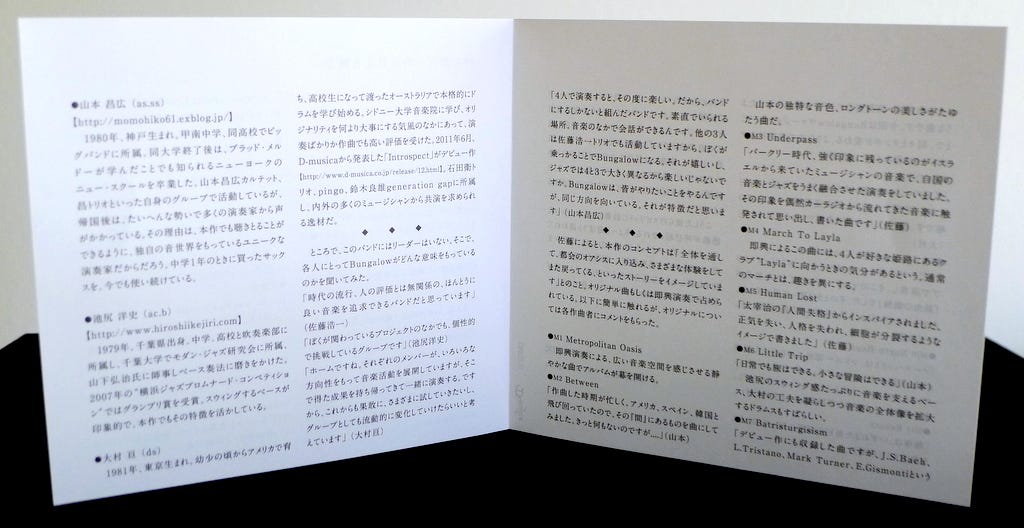 ●山本 昌広 (as.ss)
【http://momohiko61.exblog.jp/】
1980年、神戸生まれ。甲南中学、同高校でビッ
グバンドに所属。同大学終了後は、ブラッド・メル
ドーが学んだことでも知られるニューヨークの
ニュー・スクールを卒業した。山本昌広カルテット、
昌トリオといった自身のグループで活動しているが、
帰国後は、たいへんな勢いで多くの演奏家から声
がかかっている。その理由は、本作でも聴きとることが
できるように、独自の音世界をもっているユニークな
演奏家だからだろう。中学1年のときに買ったサック
スを、今でも使い続けている。
●池尻 洋史 (ac.b)
【http://www.hiroshiikejiri.com】
1979年、千葉県出身。中学、高校と吹奏楽部に
所属し、千葉大学でモダン・ジャズ研究会に所属。
山下弘治氏に師事しベース奏法に磨きをかけた。
2007年の"横浜ジャズプロムナード・コンペティショ
ン"ではグランプリ賞を受賞。スウィングするベースが
印象的で、本作でもその特徴を活かしている。
●大村 亘 (ds)
1981年、東京生まれ。幼少の頃からアメリカで育
ち、高校生になって渡ったオーストラリアで本格的にド
ラムを学び始める。シドニー大学音楽院に学び、オリ
ジナリティを何より大事にする気風のなかにあって、演
奏ばかりか作曲でも高い評価を受けた。2011年6月、
D-musicaから発表した「Introspect」がデビュー作
【http://www.d-musica.co.jp/release/12.html】。石田衛ト
リオ、pingo、鈴木良雄generation gapに所属
し、内外の多くのミュージシャンから共演を求められ
る逸材だ。
◆ ◆ ◆
ところで、このバンドにはリーダーはいない。そこで、
各人にとってBungalowがどんな意味をもっている
のかを聞いてみた。
「時代の流行、人の評価とは無関係の、ほんとうに
良い音楽を追求できるバンドだと思っています」
(佐藤浩一)
「ぼくが関わっているプロジェクトのなかでも、個性的
で挑戦しているグループです」(池尻洋史)
「ホームですね。それぞれのメンバーが、いろいろな
方向性をもって音楽活動を展開していますが、そこ
で得た成果を持ち帰ってきて一緒に演奏する。です
から、これからも果敢に、さまざまに試していきたいし、
グループとしても流動的に変化していけたらいいと考
えています」(大村亘)
「4人で演奏すると、その度に楽しい。だから、バンド
にするしかないと組んだバンドです。素直でいられる
場所。音楽のなかで会話ができるんです。他の3人
は佐藤浩一トリオでも活動していますから、ぼくが
乗っかることでBungalowになる。それが嬉しいし、
ジャズでは4と3で大きく異なるから楽しいじゃないで
すか。Bungalowは、皆がやりたいことをやるんです
が、同じ方向を向いている。それが特徴だと思いま
す」(山本昌広)
◆ ◆ ◆
佐藤によると、本作のコンセプトは「全体を通し
て、都会のオアシスに入り込み、さまざまな体験をして
また戻ってくる、といったストーリーをイメージしていま
す」とのこと。オリジナル曲もしくは即興演奏で占めら
れている。以下に簡単に触れるが、オリジナルについ
ては各作曲者にコメントをもらった。
●M1 Metropolitan Oasis
即興演奏による、広い音楽空間を感じさせる静
やかな曲でアルバムが幕を開ける。
●M2 Between
「作曲した時期が忙しく、アメリカ、スペイン、韓国と
飛び回っていたので、その「間」にあるものを曲にして
みました。きっと何もないのですが…..」(山本)
山本の独特な音色、ロングトーンの美しさがたゆ
たう曲だ。
●M3 Underpass
「バークリー時代、強く印象に残っているのがイスラ
エルから来ていたミュージシャンの音楽で、自国の
音楽とジャズをうまく融合させた演奏をしていました。
その印象を偶然カーラジオから流れてきた音楽に触
発されて思い出し、書いた曲です」(佐藤)
●M4 March To Layla
即興によるこの曲には、4人が好きな姫路にあるク
ラブ"Layla"に向かうときの気分があるという。通常
のマーチとは、趣きを異にする。
●M5 Human Lost
「太宰治の「人間失格」からインスパイアされました。
正気を失い、人格を失われ、細胞が分裂するような
イメージで書きました」(佐藤)
●M6 Little Trip
「日常でも旅はできる。小さな冒険はできる」(山本)
池尻のスウィング感たっぷりに音楽を支えるベー
ス、大村の工夫を凝らしつつ音楽の全体像を拡大
するドラムスもすばらしい。
●M7 Batristurgisism
「デビュー作にも収録した曲ですが、J.S.Bach、
L.Tristano、Mark Turner、E.Gismontiという